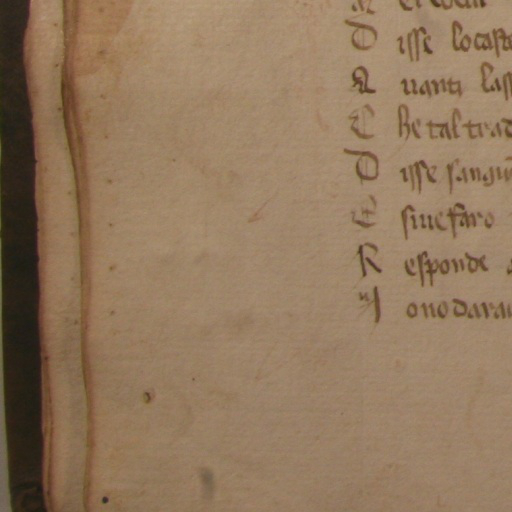 D isse locaste
A uanti lass
C he tal trad
D isse sangui
E siue faro
R esponde
N ono darai